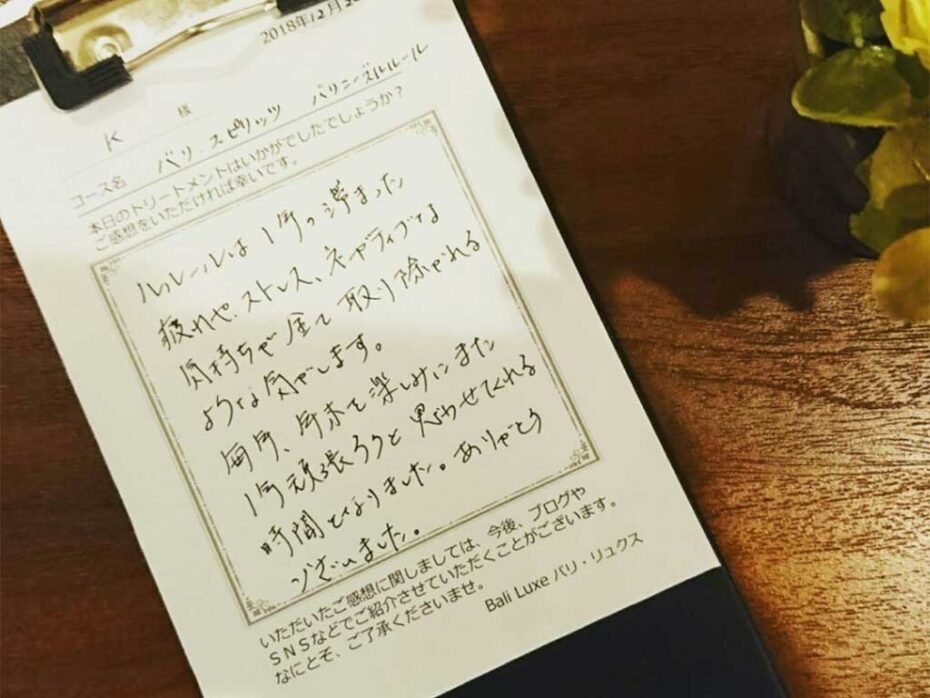 2018年12月2
K 様
コース名 バリ・スピリッツ バリニーズルルール
本日のトリートメントはいかがでしたでしょうか?
ご感想をいただければ幸いです。
ルルールは1年の溜まった
疲れや、ストレス、ネガティブな
気持ちが全て取り除かれる
ような気がします。
毎年、年末を楽しみにまた
1年頑張ろうと思わせてくれる
時間となりました。ありがとう
ございました。
いただいたご感想に関しましては、今後、ブログや
SNSなどでご紹介させていただくことがございます。
なにとぞ、ご了承くださいませ。
Bali Luxe バリ・リュクス